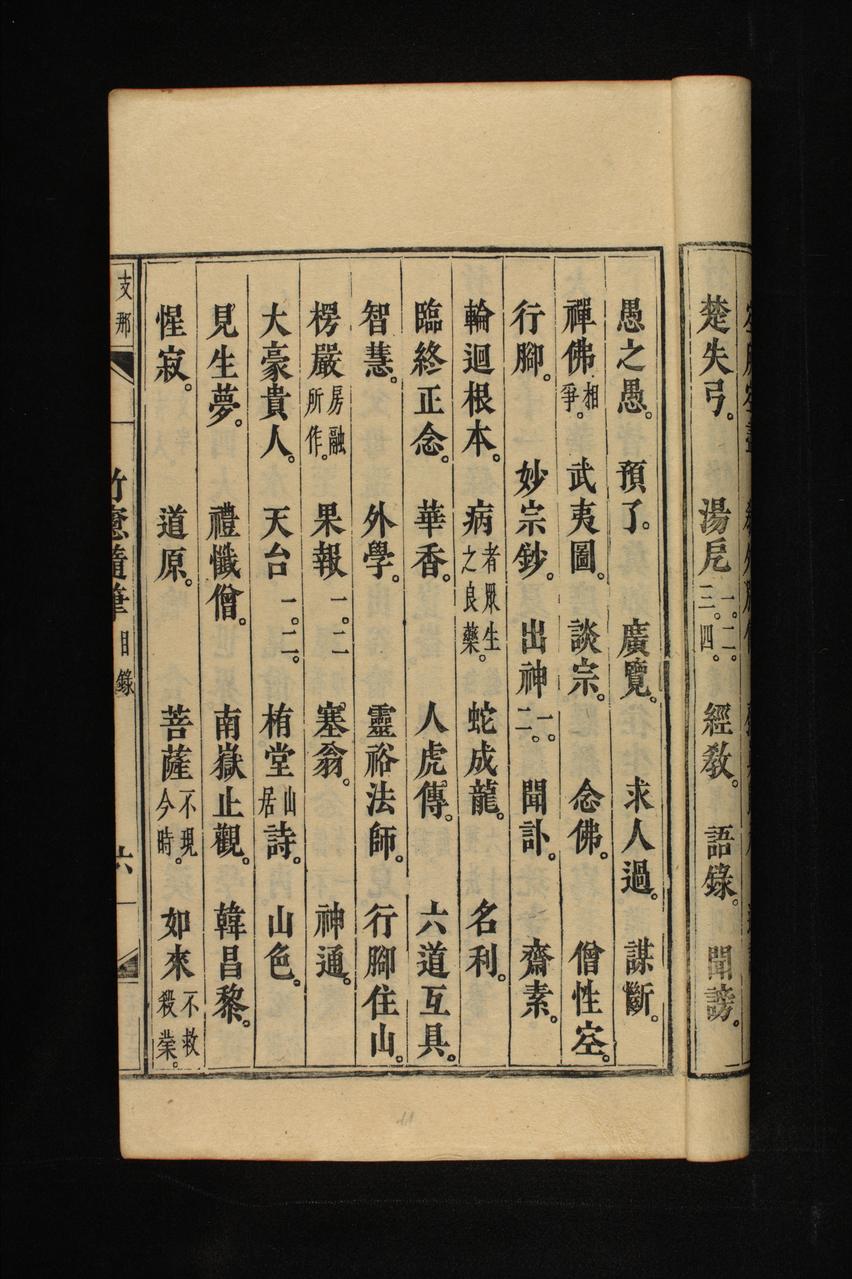 楚失弓。湯巵一。二。三。四。經教。語錄。聞謗。
愚之愚。預了。廣覽。求人過。謀斷。
禪佛相爭。武夷圖。談宗。念佛。僧性空。
行腳。妙宗鈔。出神一。二。聞訃。齋素。
輪迴根本。病者眾生之良藥。蛇成龍。名利。
臨終正念。華香。人虎傳。六道互具。
智慧。外學。靈裕法師。行腳住山。
楞嚴房融所作。果報一。二塞翁。神通。
大豪貴人。天台一。二。栯堂山居詩。山色。
見生夢。禮懺僧。南嶽止觀。韓昌黎。
惺寂。道原。菩薩不現今時。如來不救殺業。
支那
竹窻隨筆目錄
六